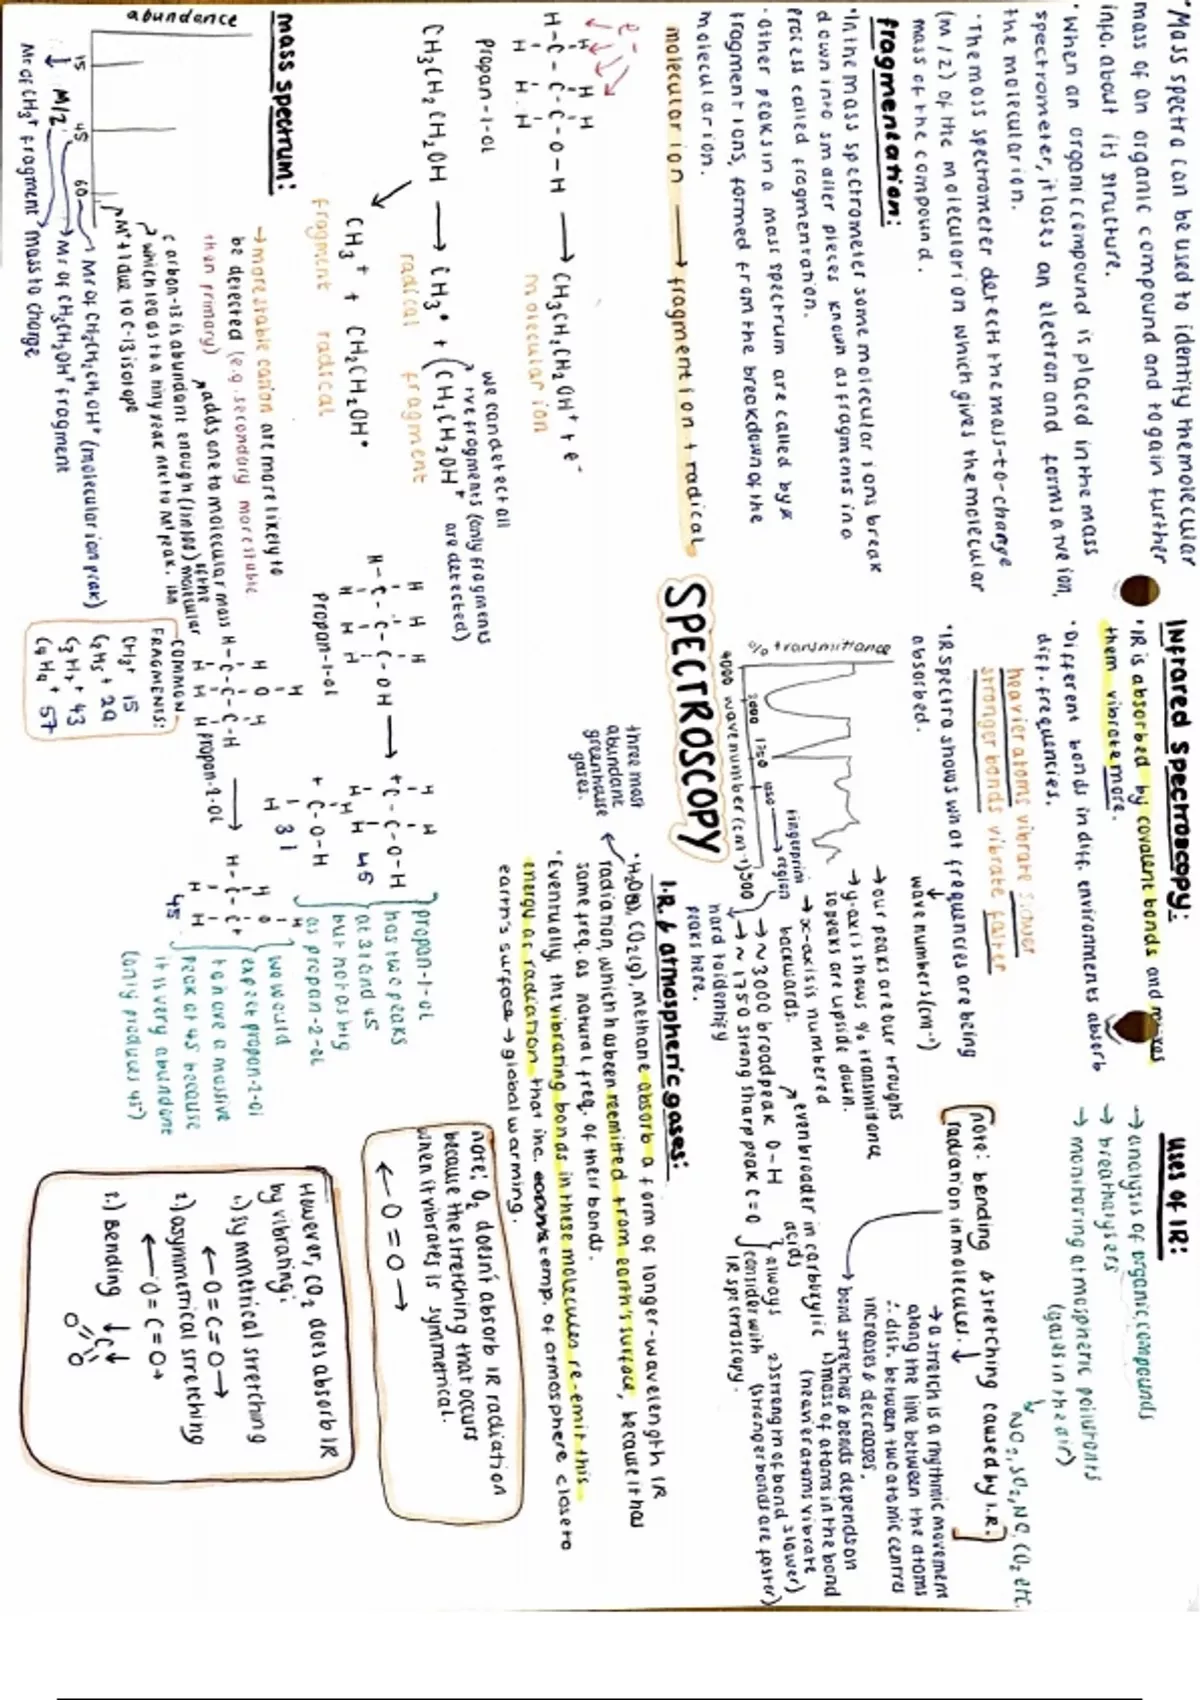 •Mass spectra can be used to identify the molecular
mass of an organic compound and to gain further
info. about its structure.
• When an organic compound is placed in the mass
spectrometer, it loses an electron and forms a +ve ion,
the molecular ion.
• The mass spectrometer detects the mass-to-charge
(m/z) of the molecular ion which gives the molecular
mass of the compound.
fragmentation:
•In the mass spectrometer some molecular ions break
down into smaller pieces known as fragments in a
process called fragmentation.
• other peaks in a mass spectrum are called by
fragment ions, formed from the breakdown of the
molecular ion.
molecular ion → fragment ion + radical
e-
H H H
H-C-C-C-O-H → CH3CH2CH2OH+ + e-
H H H
propan-1-ol
molecular ion
we can detect all
+ve fragments (only fragments
are detected)
CH3CH2CH2OH → CH3• + (CH2CH2OH+
radical fragment
CH3+ + CH2CH2OH•
fragment radical
mass spectrum:
abundance
15
45
60
M/Z
mass to charge
Mr of CH3+ fragment
Mr of CH2CH2OH+ fragment
Mr of CH3CH2CH2OH+ (molecular ion peak)
M+ + 1 due to C-13 isotope
→ more stable cation are more likely to
be detected (e.g. secondary more stable
than primary)
adds one to molecular mass
carbon-13 is abundant enough (1 in 100) of the molecular ion
which leads to a tiny peak next to M+ peak.
COMMON
FRAGMENTS:
CH3+ 15
C2H5+ 29
C3H7+ 43
C4H9+ 57
SPECTROSCOPY
H H H
H-C-C-C-OH → +C-C-O-H
H H H
propan-1-ol
45
+C-O-H
31
propan-1-ol
has two peaks
at 31 and 45
but not as big
as propan-2-ol
H O H
H-C-C-C-H → H-C-C+
H H H
propan-2-ol
45
we would
expect propan-2-ol
to have a massive
peak at 45 because
it is very abundant
(only produces 45)
Infrared spectroscopy:
•IR is absorbed by covalent bonds and makes
them vibrate more.
• Different bonds in diff. environments absorb
diff. frequencies.
heavier atoms vibrate slower
stronger bonds vibrate faster
•IR spectra shows what frequencies are being
absorbed.
wave numbers (cm-1)
% transmittance
4000
3000
1750
1250
500
wavenumber (cm-1)
fingerprint
region
hard to identify
peaks here.
→ our peaks are our troughs
→ y-axis shows % transmittance
so peaks are upside down.
→ x-axis is numbered
backwards.
even broader in carboxylic
acids
→ ~3000 broad peak O-H
→ ~1750 strong sharp peak C=O
always
consider with
IR spectroscopy.
I.R. & atmospheric gases:
three most
abundant
greenhouse
gases.
•H2O(g), CO2(g), methane absorb a form of longer-wavelength IR
radiation, which has been reemitted from earth's surface, because it has
same freq. as natural freq. of their bonds.
•Eventually, the vibrating bonds in these molecules re-emit this
energy as radiation that inc. temp. of atmosphere close to
earth's surface → global warming.
uses of IR:
→ analysis of organic compounds
→ breathalysers
→ monitoring atmospheric pollutants
(gases in the air)
NO2, SO2, NO, CO2 etc.
note: bending & stretching caused by I.R.
radiation in molecules.
→ a stretch is a rhythmic movement
along the line between the atoms
∴ dist. between two atomic centres
increases & decreases.
→ bond stretches & bends depends on
1) mass of atoms in the bond
(heavier atoms vibrate
slower)
2) strength of bond
(stronger bonds are faster)
note: O2 doesn't absorb IR radiation
because the stretching that occurs
when it vibrates is symmetrical.
← O=O →
However, CO2 does absorb IR
by vibrating:
1.) symmetrical stretching
← O=C=O →
2.) asymmetrical stretching
← O=C=O →
2.) Bending
O C O